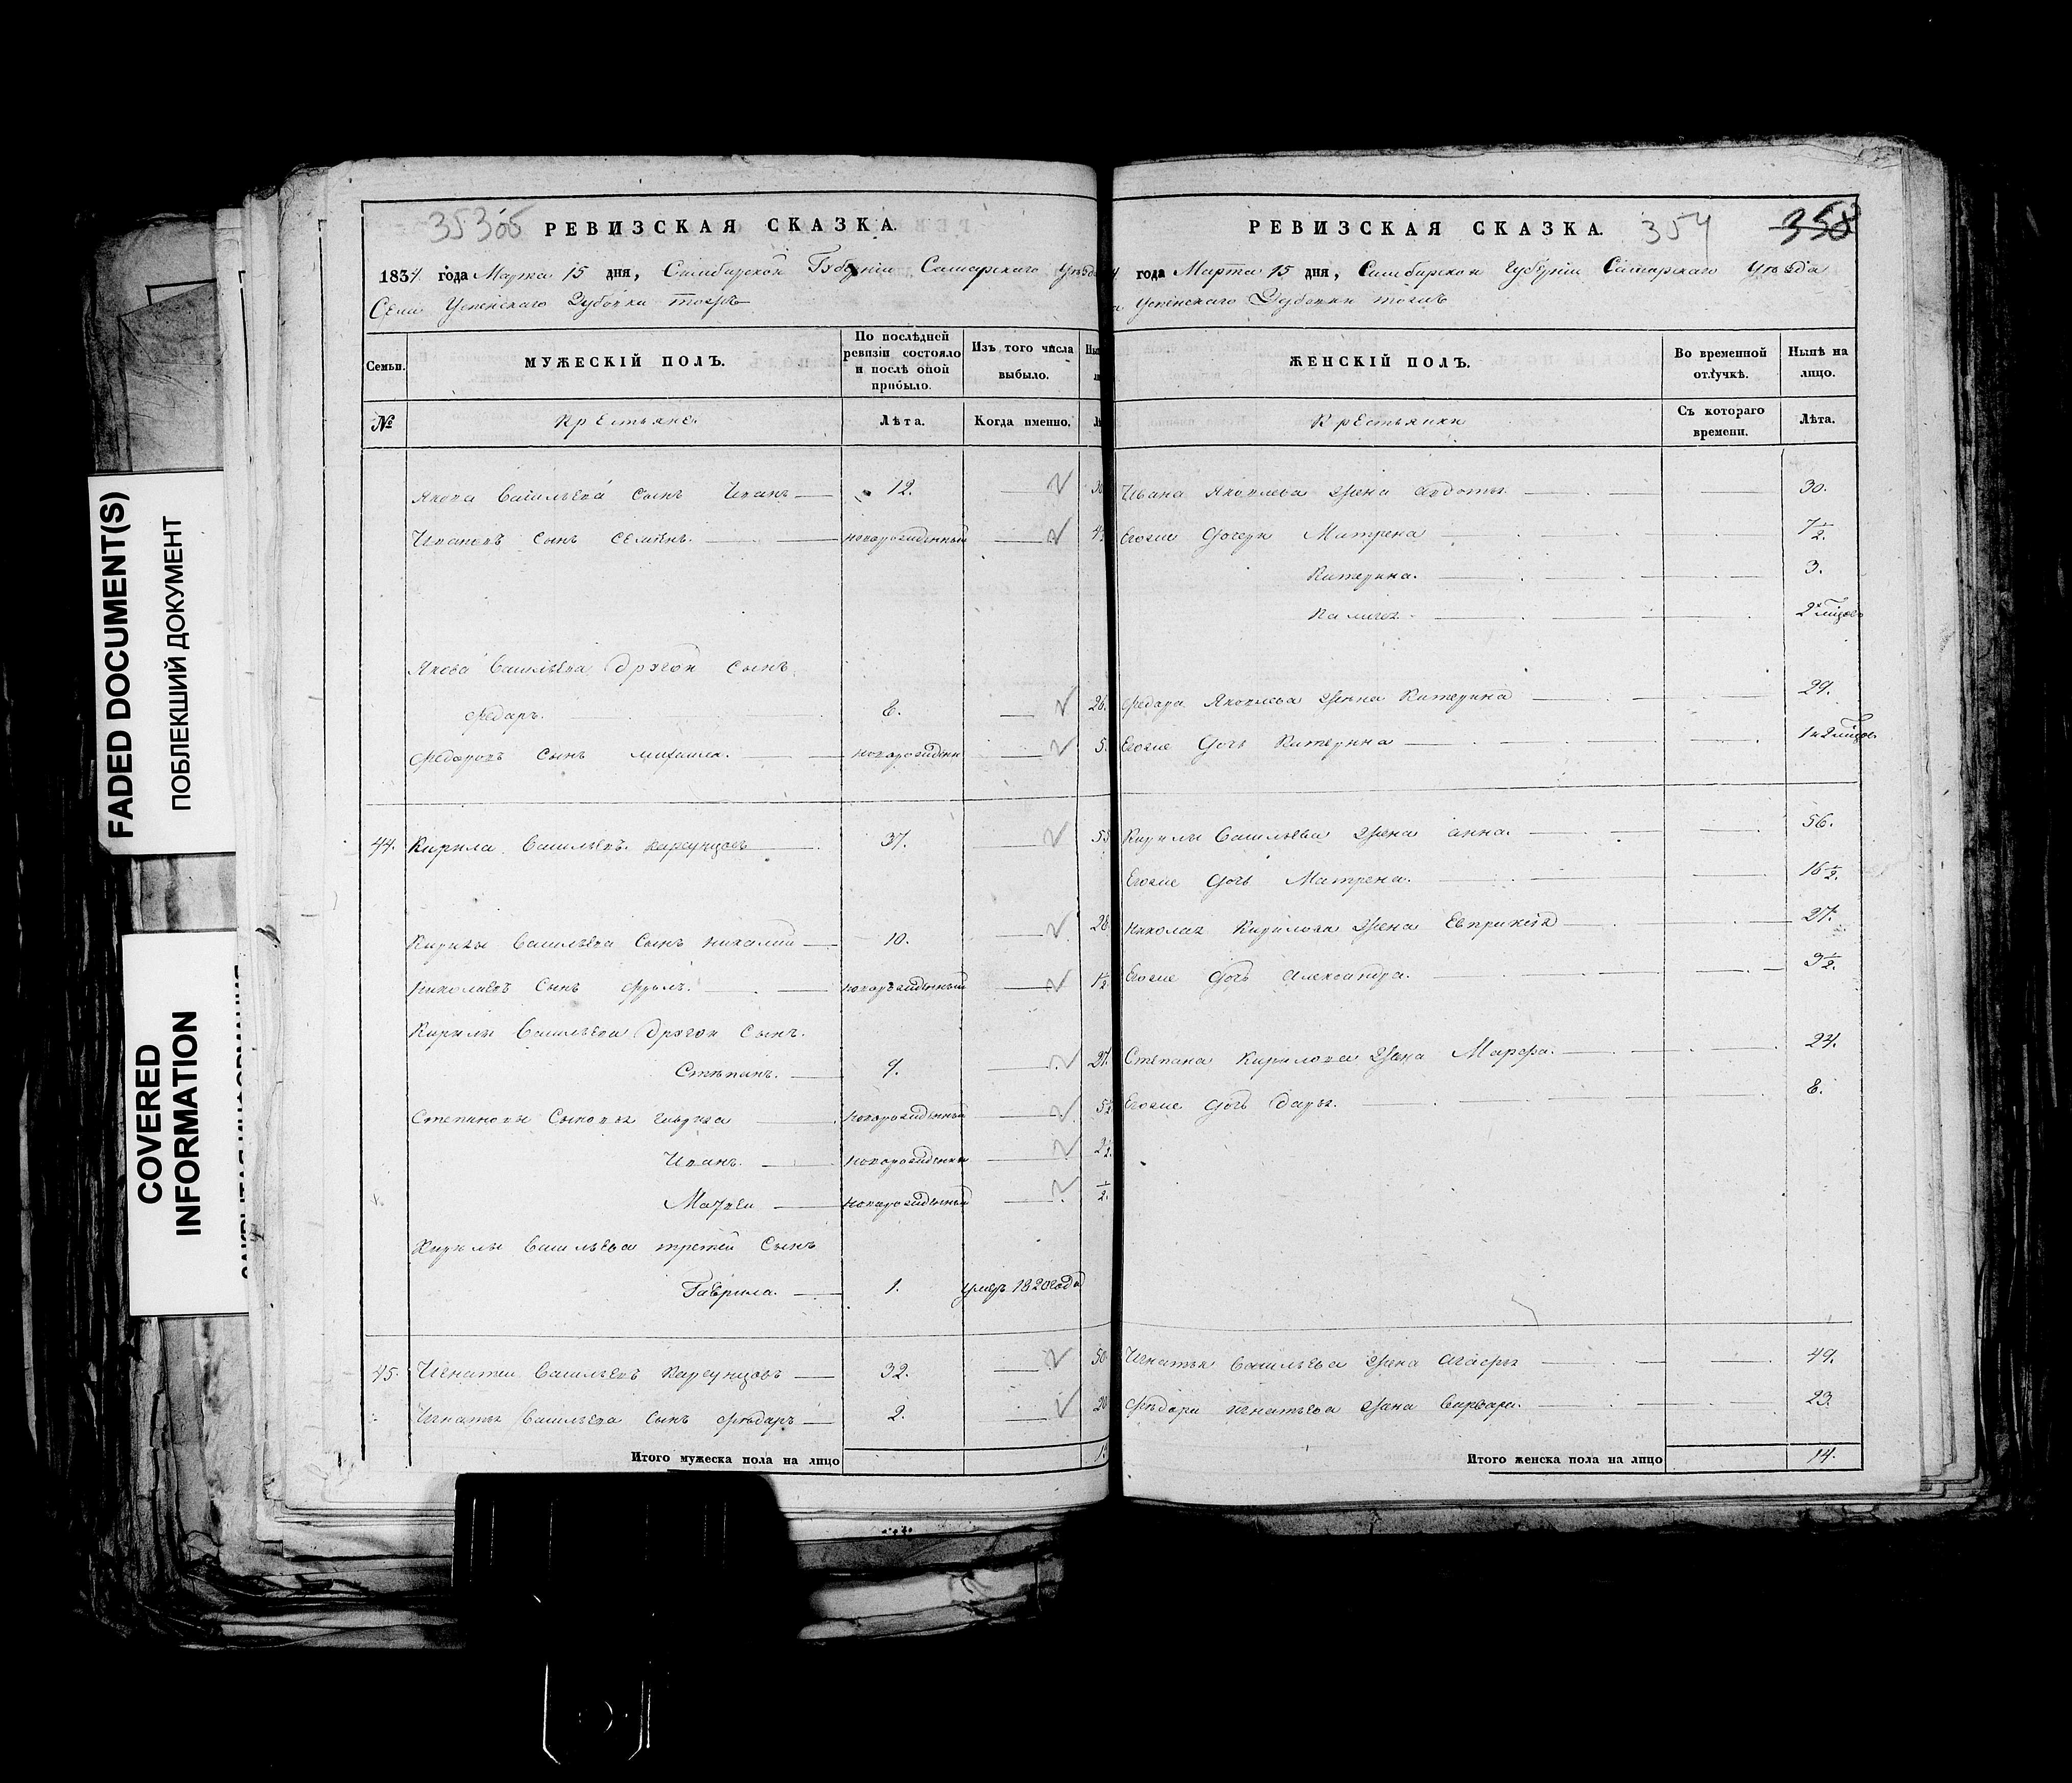 FADED DOCUMENT(S)
ПОБЛЕКШИЙ ДОКУМЕНТ
COVERED
INFORMATION
353об
РЕВИЗСКАЯ СКАЗКА.
1834 года Марта 15 дня, Симбирской Губерніи Самарскаго Уѣзда
Села Успенскаго Дубовки тожъ
Семьи. МУЖЕСКІЙ ПОЛЪ. По послѣдней ревизіи состояло и послѣ оной прибыло. Изъ того числа выбыло.
№ Крестьяне. Лѣта. Когда именно.
Якова Васильева сынъ Иванъ 12.
Ивановъ сынъ Семенъ. новорожденный
Якова Васильева другой сынъ
Федаръ. 8. 26.
Федаровъ сынъ Михаила. новорожденн 5.
44. Кирила Васильевъ Карсунцовъ 37. 55
Кирилы Васильева сынъ Николай 10. 28
Николаевъ сынъ Фролъ. новорожденный 1 1/2
Кирилы Васильева другой сынъ.
Степанъ. 9. 27.
Степановы сыновья новорожденный 5 1/2
Иванъ. новорожденны 2 1/2
Матвеи новорожденный 1/2
Кирилы Васильева третей сынъ
Гаврила. 1. умеръ 1820 года
45. Игнатеи Васильевъ Карсунцовъ 32. 50
Игнатья Васильева сынъ Федаръ 2. 20
Итого мужеска пола на лицо
РЕВИЗСКАЯ СКАЗКА. 354 358
года Марта 15 дня, Симбирской Губерніи Самарскаго Уѣзда
Успенскаго Дубовки тожъ
ЖЕНСКІЙ ПОЛЪ. Во временной отлучкѣ. Нынѣ на лицо.
Крестьянки Съ котораго времени. Лѣта.
Ивана Яковлева жена Авдотья 30.
Егоже дочери Матрена 7 1/2.
Катерина. 3.
2х мѣсецовъ
Федара Яковлева жена Катерина 29.
Егоже дочь Катерина
Кирилы Васильева жена Анна. 56.
Егоже дочь Матрена. 16 1/2.
Николая Кирилова жена 27.
Егоже дочь Александра. 3 1/2.
Степана Кирилова жена Марфа. 24.
Егоже дочь Дарья. 8.
Игнатья Васильева жена Агафья 49.
Федара Игнатьева жена Варвара. 23.
Итого женска пола на лицо 14.